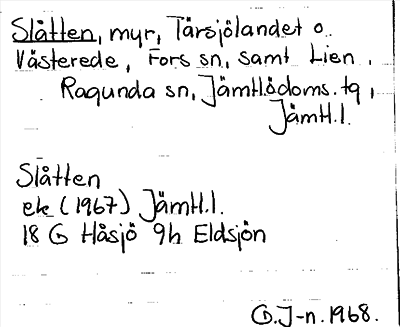 Slåtten, myr, Tärsjölandet o.
Västerede, Fors sn, samt Lien,
Ragunda sn, Jämtl:s doms. tg,
Jämtl.l.
Slåtten
ek (1967) Jämtl.l.
18 G Håsjö 9h Eldsjön
G.J-n. 1968.